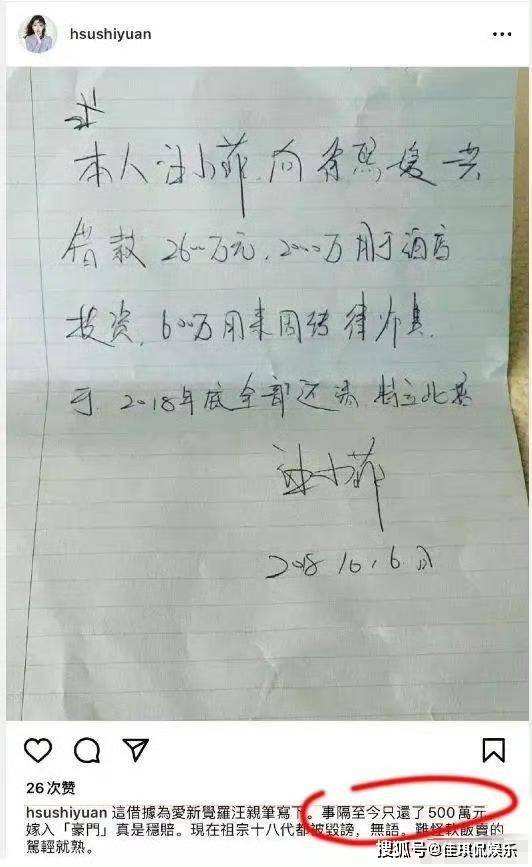 hsushiyuan
本人汪小菲,向徐熙媛共
借款2600万元,2000万用于酒店
投资,600万用来周转律师费.
于2018年底全部还清 特立此据
汪小菲
2018 10, 6日
26次赞
hsushiyuan 這借據為愛新覺羅汪親筆寫下。事隔至今只還了500萬元
嫁入「豪門」真是穩賠。現在祖宗十八代都被毀謗，無語。難怪軟飯賣的
駕輕就熟。
搜狐号@佳琪侃娱乐